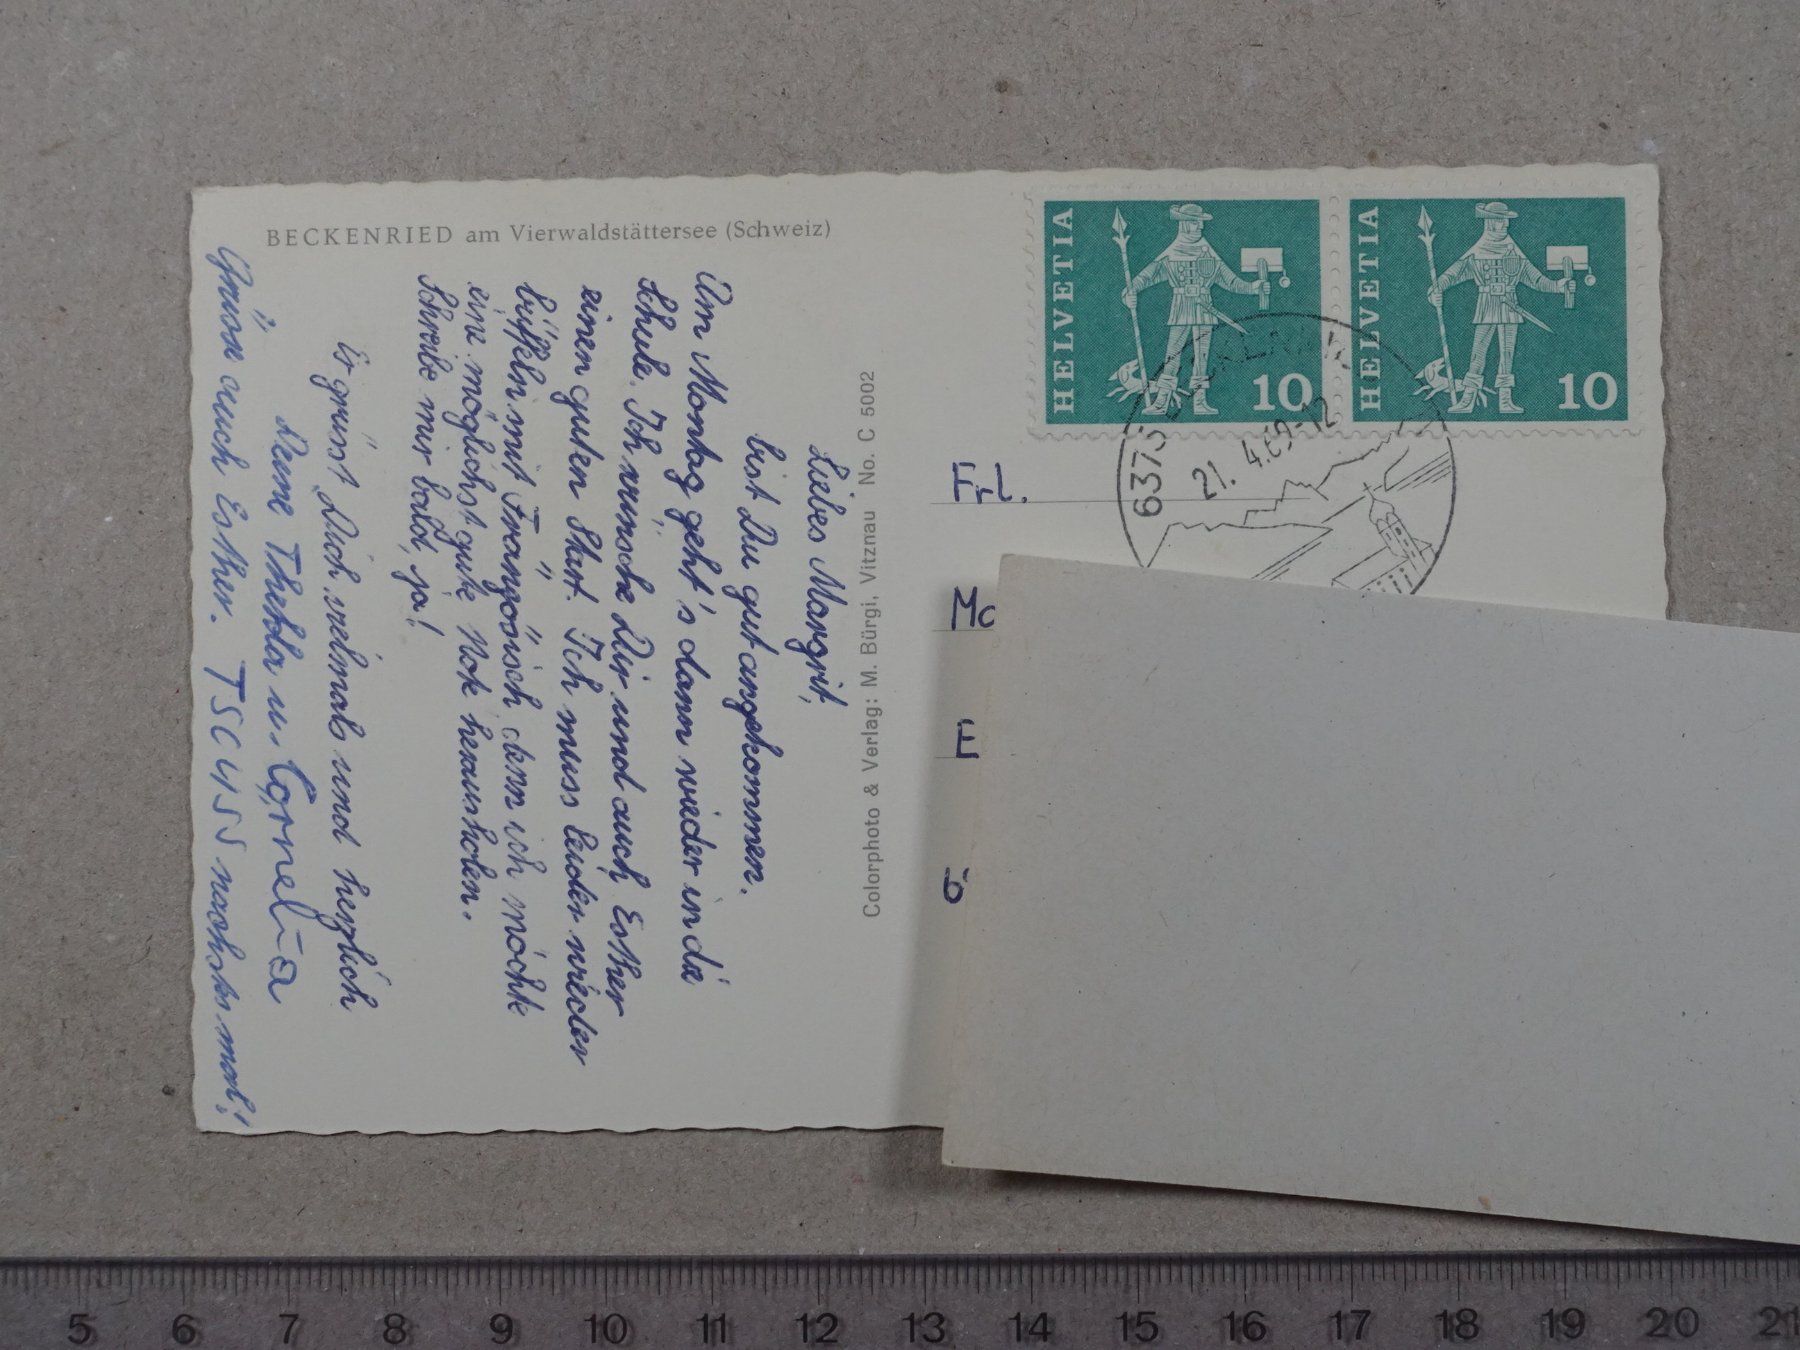 BECKENRIED am Vierwaldstättersee (Schweiz)
Liebes Margrit,
bist Du gut angekommen.
Am Montag geht's dann wieder in die
Schule. Ich wünsche Dir und auch Esther
einen guten Start. Ich muss leider wieder
büffeln mit Französisch denn ich möchte
eine möglichst gute Note herausholen.
Schreibe mir bald, ja!
Es grüsst Dich vielmals und herzlich
Deine Thekla u. Cornelia
Grüsse auch Esther. TSCUSS nochstn mal!
Colorphoto & Verlag: M. Bürgi, Vitznau No. C 5002
HELVETIA 10
HELVETIA 10
6375 BECKENRIED
21. 4.69-12
Frl.
E
5 6 7 8 9 10 11 12 13 14 15 16 17 18 19 20 21